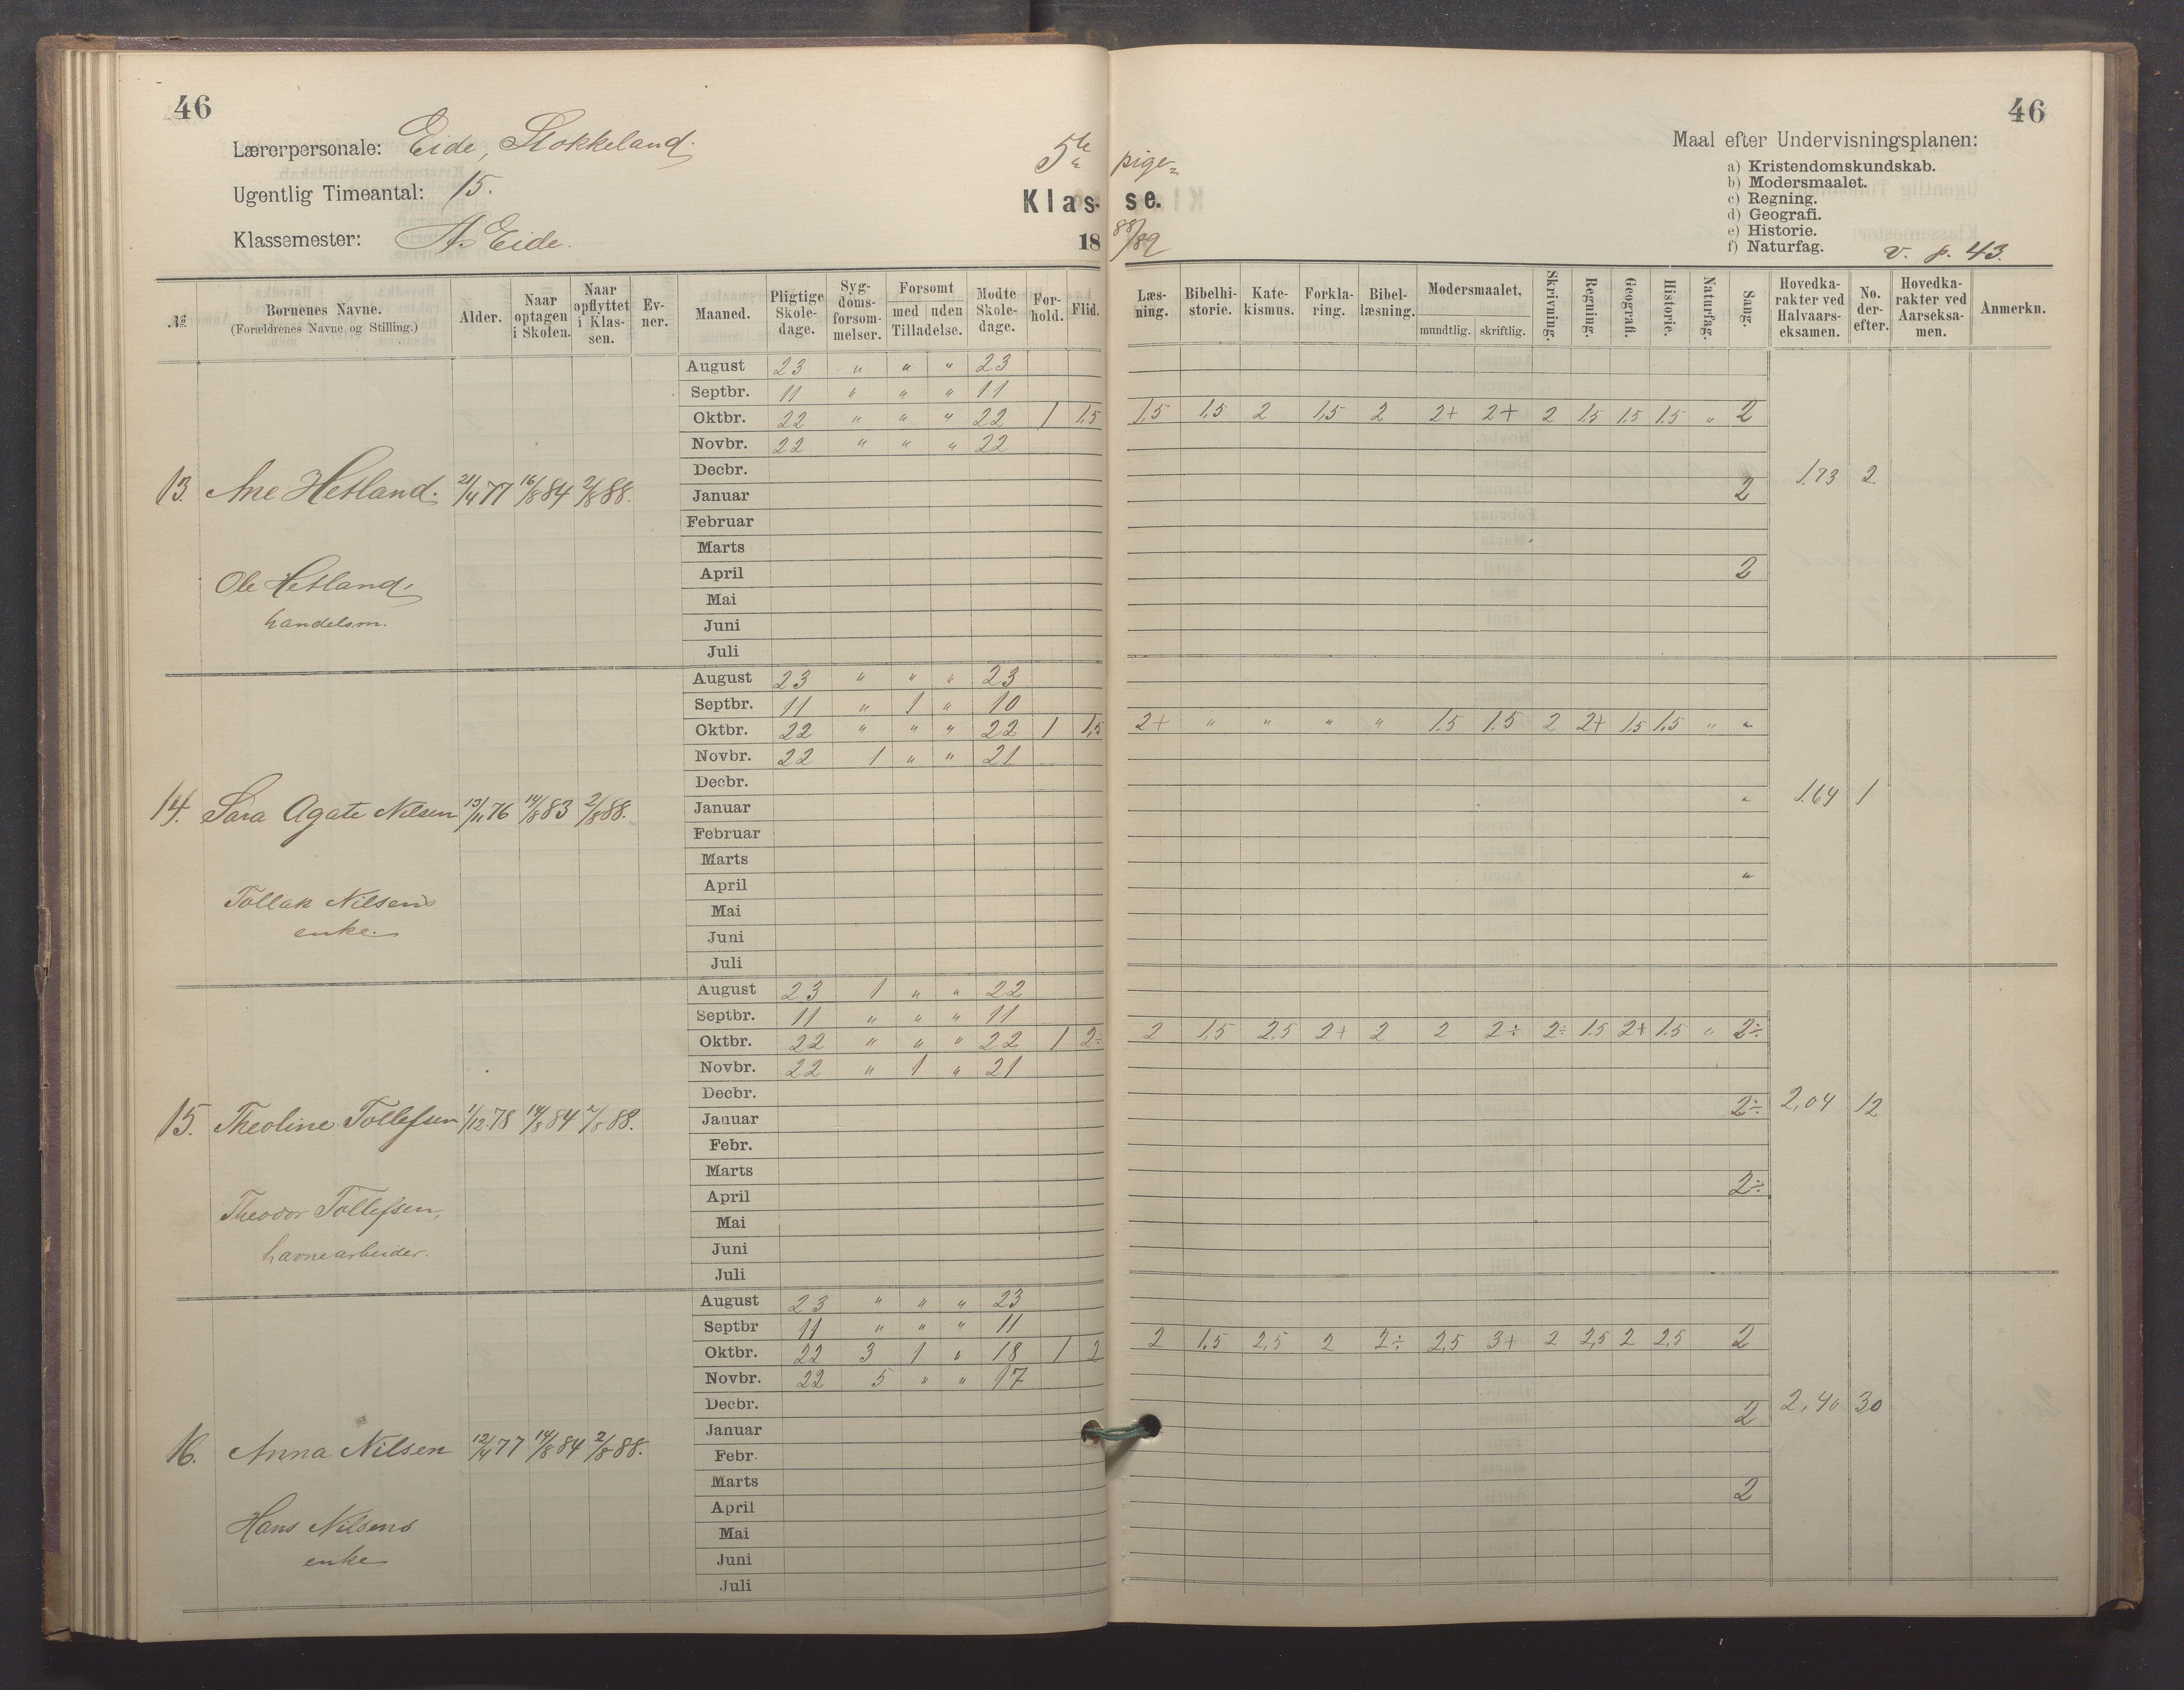 46
46
Lærerpersonale: Eide, Stokkeland.
Ugentlig Timeantal: 15.
Klassemester: A. Eide.
5te a pige-
Klas- se.
18 88/89
Maal efter Undervisningsplanen:
a) Kristendomskundskab.
b) Modersmaalet.
c) Regning.
d) Geografi.
e) Historie.
f) Naturfag. v. p. 43.
№ Børnenes Navne. (Forældrenes Navne og Stilling.) Alder. Naar optagen i Skolen. Naar opflyttet i Klas- sen. Ev- ner. Maaned. Pligtige Skole- dage. Syg- doms- forsom- melser. Forsomt med uden Tilladelse. Mødte Skole- dage. For- hold. Flid. Læs- ning. Bibelhi- storie. Kate- kismus. Forkla- ring. Bibel- læsning. Modersmaalet, mundtlig. skriftlig. Skrivning. Regning. Geografi. Historie. Naturfag. Sang. Hovedka- rakter ved Halvaars- eksamen. No. der- efter. Hovedka- rakter ved Aarseksa- men. Anmerkn.
August 23 " " " 23
Septbr. 11 " " " 11
Oktbr. 22 " " " 22 1 1,5 1,5 1,5 2 1,5 2 2+ 2+ 2 1.5 1.5 1.5 " 2
Novbr. 22 " " " 22
Decbr.
13. Ane Hetland. 21/4 77 16/8 84 2/8 88. Januar 2 1.73 2
Februar
Marts
Ole Hetland, April 2
handelsm. Mai
Juni
Juli
August 23 " " " 23
Septbr. 11 " 1 " 10
Oktbr. 22 " " " 22 1 1,5 2+ " " " " 1.5 1.5 2 2+ 1.5 1.5 " "
Novbr. 22 1 " " 21
Decbr.
14. Sara Agate Nilsen 13/11 76 14/8 83 2/8 88. Januar " 1.64 1
Februar
Marts
Tollak Nilsens April "
enke. Mai
Juni
Juli
August 23 1 " " 22
Septbr. 11 " " " 11
Oktbr. 22 " " " 22 1 2÷ 2 1,5 2,5 2+ 2 2 2÷ 2÷ 1.5 2+ 1.5 " 2÷
Novbr. 22 " 1 " 21
Decbr.
15. Theoline Tollefsen 1/12 78 14/8 84 2/8 88. Januar 2÷ 2,04 12
Febr.
Marts
Theodor Tollefsen, April 2÷
havnearbeider. Mai
Juni
Juli
August 23 " " " 23
Septbr 11 " " " 11
Oktbr. 22 3 1 " 18 1 2 2 1.5 2,5 2 2÷ 2,5 3+ 2 2,5 2 2,5 2
Novbr. 22 5 " " 17
Decbr.
16. Anna Nilsen 12/4 77 14/8 84 2/8 88. Januar 2 2,40 30
Febr.
Marts
Hans Nilsens April 2
enke Mai
Juni
Juli